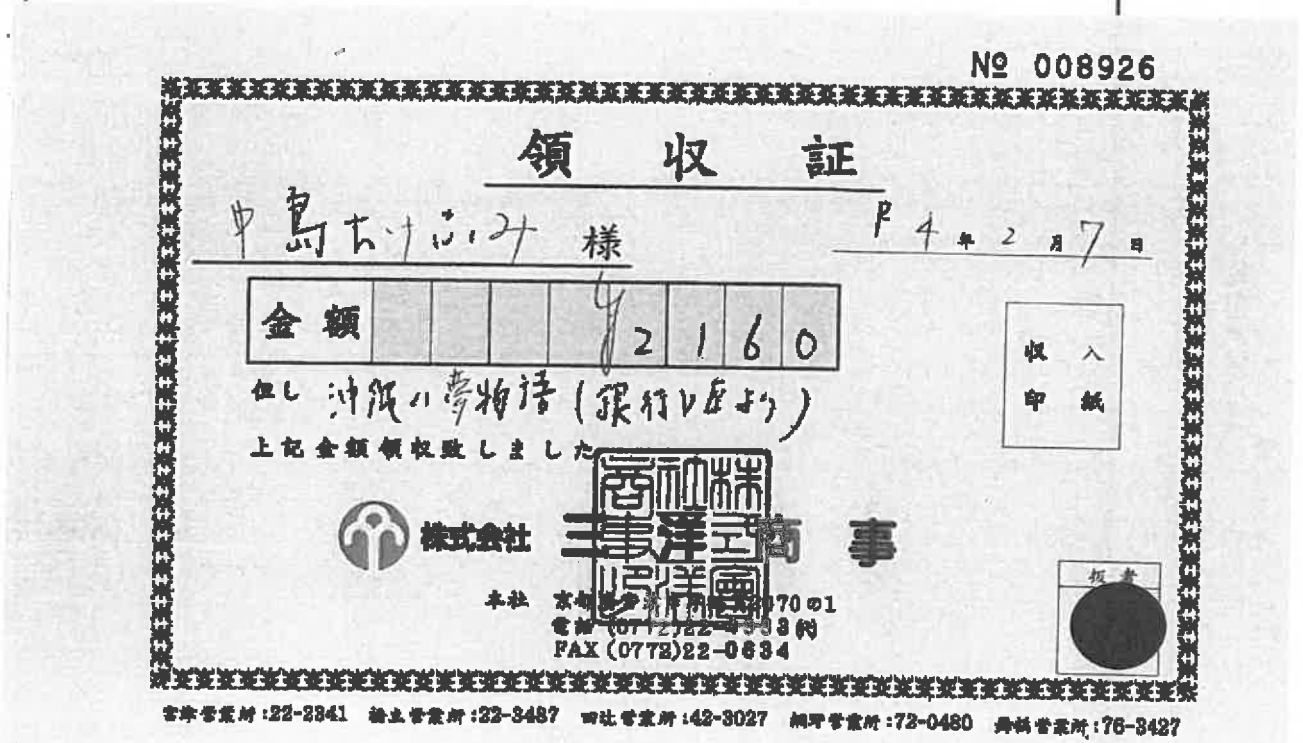 № 008926
領収証
中島たけふみ 様
R4年2月7日
金額 ¥2160
但し 沖縄八夢物語(銀行
上記金額領収致しました
株式会社 三洋商事
本社 京都 2070の1
電話 (0772)22- 3㈹
FAX (0772)22-0634
収入
印紙
扱者
宮津営業所:22-2341 橋立営業所:22-3487 四辻営業所:42-3027 網野営業所:72-0480 舞鶴営業所:76-3427